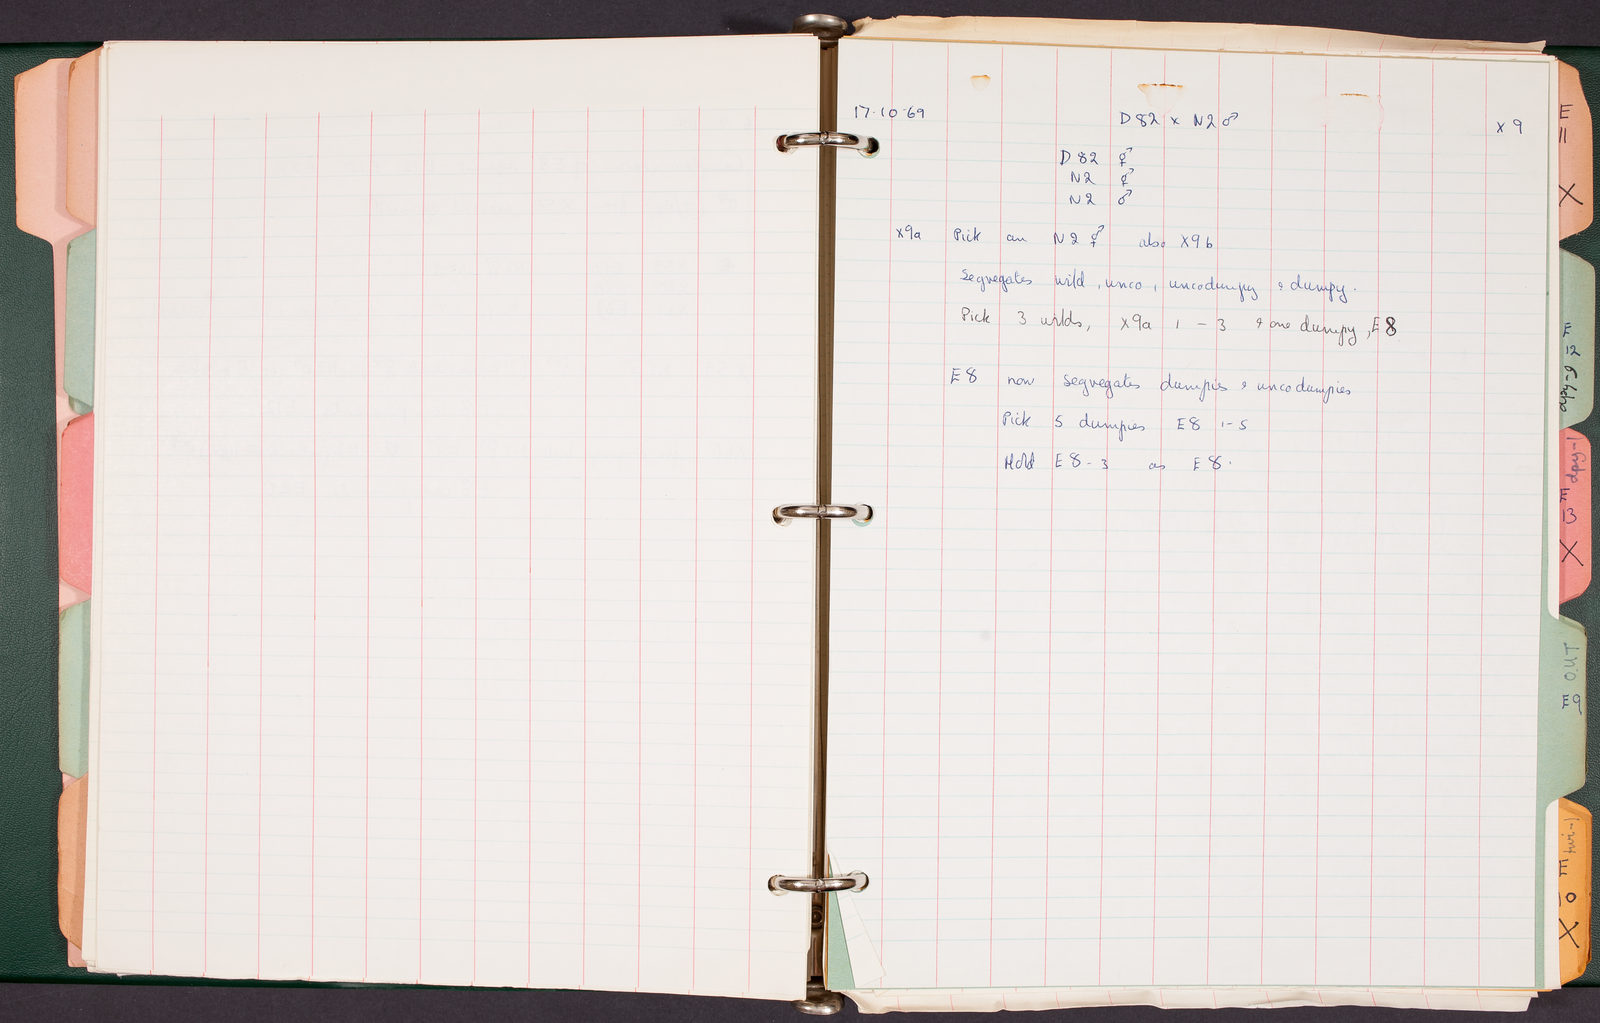 17.10.69 D82 x N2 ♂ X9
D82 ⚥
N2 ⚥
N2 ♂
X9a Pick an N2 ⚥ also X9b
Segregates wild, unco, uncodumpy & dumpy.
Pick 3 wilds, X9a 1 - 3 & one dumpy, E8
E8 now segregates dumpies & uncodumpies
Pick 5 dumpies E8 1-5
Hold E8-3 as E8.
E
11
X
E
12
dpy-9
dpy-1
E
13
X
O.U.T
E9
twi-1
E
10
X